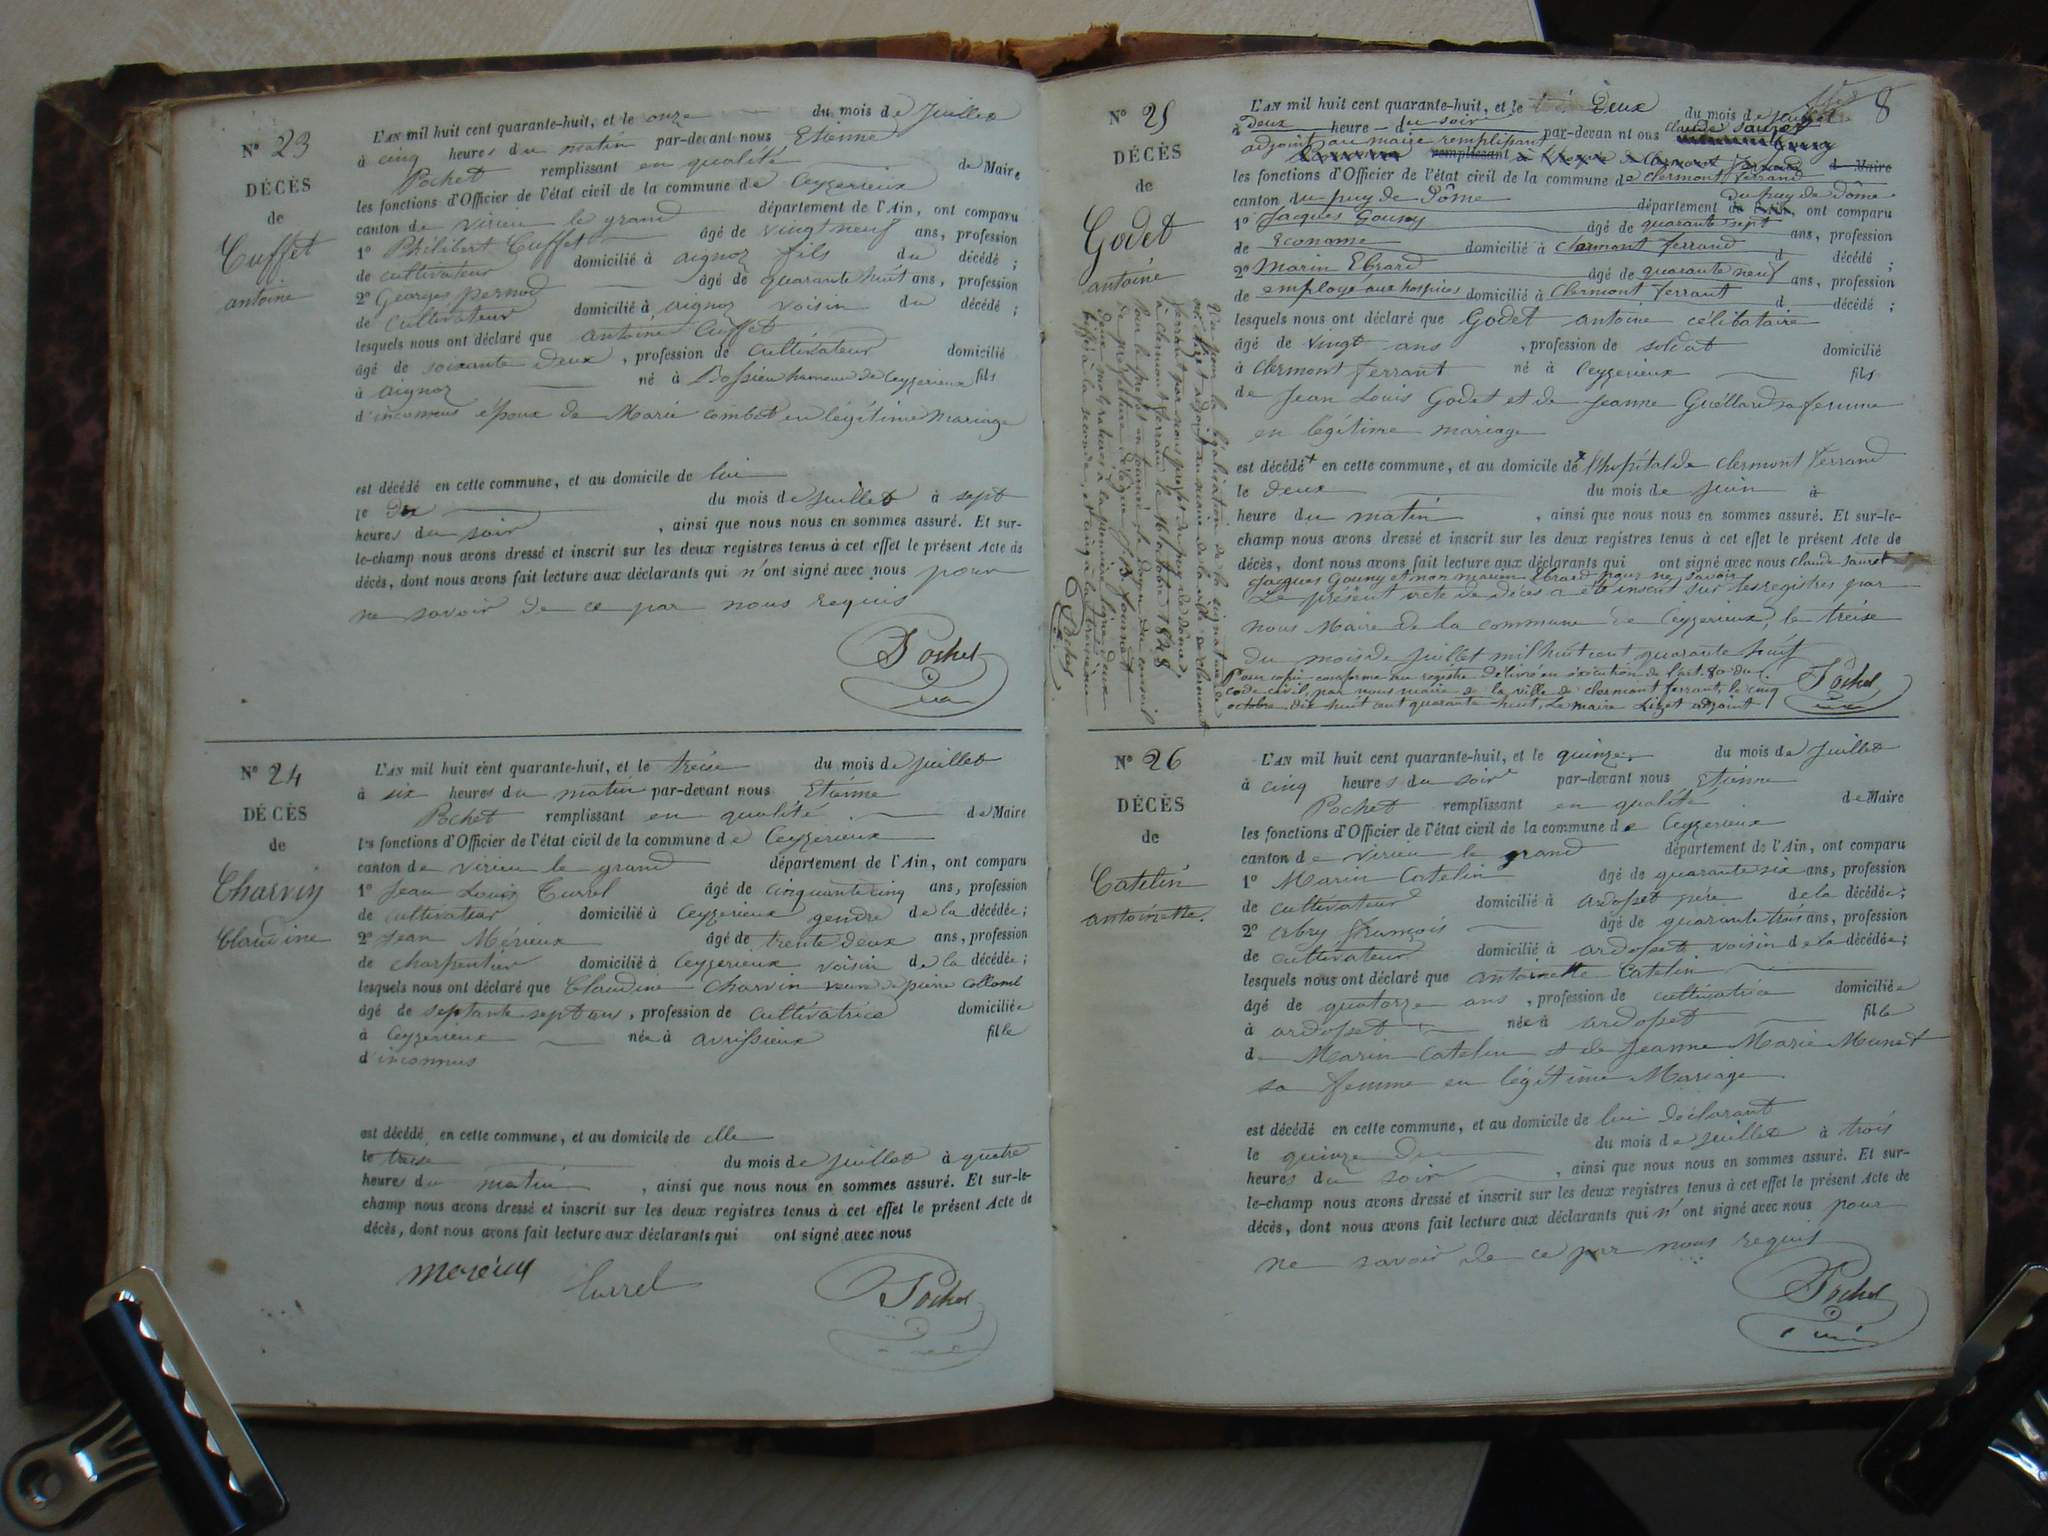 N° 23
DÉCÈS
de
Cuffet
antoine
L'AN mil huit cent quarante-huit, et le onze du mois de Juillet
à cinq heures du matin par-devant nous Etienne
Pochet remplissant en qualité de Maire
les fonctions d'Officier de l'état civil de la commune de Ceyzerieux
canton de virieu le grand département de l'Ain, ont comparu
1° Philibert Cuffet âgé de vingt neuf ans, profession
de cultivateur domicilié à aignoz fils du décédé ;
2° Georges pernod âgé de quarante huit ans, profession
de cultivateur domicilié à aignoz voisin du décédé ;
lesquels nous ont déclaré que antoine Cuffet
âgé de soixante deux , profession de cultivateur domicilié
à aignoz né à Bossieu hameau de Ceyzerieux fils
d'inconnus époux de Marie combet en légitime mariage
est décédé en cette commune, et au domicile de lui
le dix du mois de juillet à sept
heures du soir , ainsi que nous nous en sommes assuré. Et sur-
le-champ nous avons dressé et inscrit sur les deux registres tenus à cet effet le présent Acte de
décès, dont nous avons fait lecture aux déclarants qui n'ont signé avec nous pour
ne savoir de ce par nous requis
Pochet
N° 24
DÉCÈS
de
Charvin
Claudine
L'AN mil huit cent quarante-huit, et le treise du mois de juillet
à six heures du matin par-devant nous Etienne
Pochet remplissant en qualité de Maire
les fonctions d'Officier de l'état civil de la commune de Ceyzerieux
canton de virieu le grand département de l'Ain, ont comparu
1° Jean Louis Turrel âgé de cinquante cinq ans, profession
de cultivateur domicilié à Ceyzerieux gendre de la décédée ;
2° Jean Mérieux âgé de trente deux ans, profession
de charpentier domicilié à Ceyzerieux voisin de la décédée ;
lesquels nous ont déclaré que Claudine Charvin veuve de pierre Collomb
âgé de septante sept ans , profession de cultivatrice domiciliée
à Ceyzerieux née à avrissieux fille
d'inconnus
est décédé en cette commune, et au domicile de elle
le treise du mois de juillet à quatre
heures du matin , ainsi que nous nous en sommes assuré. Et sur-le-
champ nous avons dressé et inscrit sur les deux registres tenus à cet effet le présent Acte de
décès, dont nous avons fait lecture aux déclarants qui ont signé avec nous
Turrel
Pochet
8
N° 25
DÉCÈS
de
Godet
antoine
L'AN mil huit cent quarante-huit, et le Deux du mois de
à Deux heure du soir par-devan nt ous Claude Sauret
adjoint au maire remplissant
les fonctions d'Officier de l'état civil de la commune de clermont ferrand
canton du puy de Dôme département du puy de Dôme, ont comparu
1° Jacques Gouny âgé de quarante sept ans, profession
de Econome domicilié à clermont ferrand d décédé ;
2° Marin Ebrard âgé de quarante neuf ans, profession
de employé aux hospices domicilié à Clermont ferrant d décédé ;
lesquels nous ont déclaré que Godet antoine célibataire
âgé de vingt ans , profession de soldat domicilié
à clermont ferrant né à Ceyzerieux fils
de Jean Louis Godet et de Jeanne Guéllard sa femme
en légitime mariage
est décédé en cette commune, et au domicile de l'hopital de clermont ferrand
le deux du mois de juin à
heure du matin , ainsi que nous nous en sommes assuré. Et sur-le-
champ nous avons dressé et inscrit sur les deux registres tenus à cet effet le présent Acte de
décès, dont nous avons fait lecture aux déclarants qui ont signé avec nous Claude Sauret
Jacques Gouny et non marin Ebrard pour ne savoir
Le présent acte de décès a été inscrit sur les registres par
nous Maire de la commune de Ceyzerieux, le treise
du mois de juillet mil huit cent quarante huit
Pour copie conforme au registre délivré en éxécution de l'art. 80 du
code civil, par nous maire de la ville de clermont ferrant, le cinq
octobre dix huit cent quarante huit, Le maire Lizet adjoint
Pochet
Vu pour la légalisation de la signature de
Lizet adjoint au maire de la ville de clermont
ferrant par nous préfet du puy de Dôme,
à clermont ferrand le octobre 1848
Pour le préfet en tournée le doyen du conseil
de préfecture délégué
Pochet
N° 26
DÉCÈS
de
Catelin
antoinette.
L'AN mil huit cent quarante-huit, et le quinze du mois de Juillet
à cinq heures du soir par-devant nous Etienne
Pochet remplissant en qualité de Maire
les fonctions d'Officier de l'état civil de la commune de Ceyzerieux
canton de virieu le grand département de l'Ain, ont comparu
1° Marin Catelin âgé de quarante six ans, profession
de cultivateur domicilié à ardosset père de la décédée ;
2° Arbry françois âgé de quarante trois ans, profession
de cultivateur domicilié à ardosset voisin de la décédée ;
lesquels nous ont déclaré que antoinette Catelin
âgé de quatorze ans , profession de cultivatrice domiciliée
à ardosset née à ardosset fille
de Marin Catelin et de Jeanne Marie Munet
sa femme en légitime Mariage
est décédé en cette commune, et au domicile de lui déclarant
le quinze du du mois de juillet à trois
heures du soir , ainsi que nous nous en sommes assuré. Et sur-
le-champ nous avons dressé et inscrit sur les deux registres tenus à cet effet le présent Acte de
décès, dont nous avons fait lecture aux déclarants qui n'ont signé avec nous pour
ne savoir de ce par nous requis
Pochet